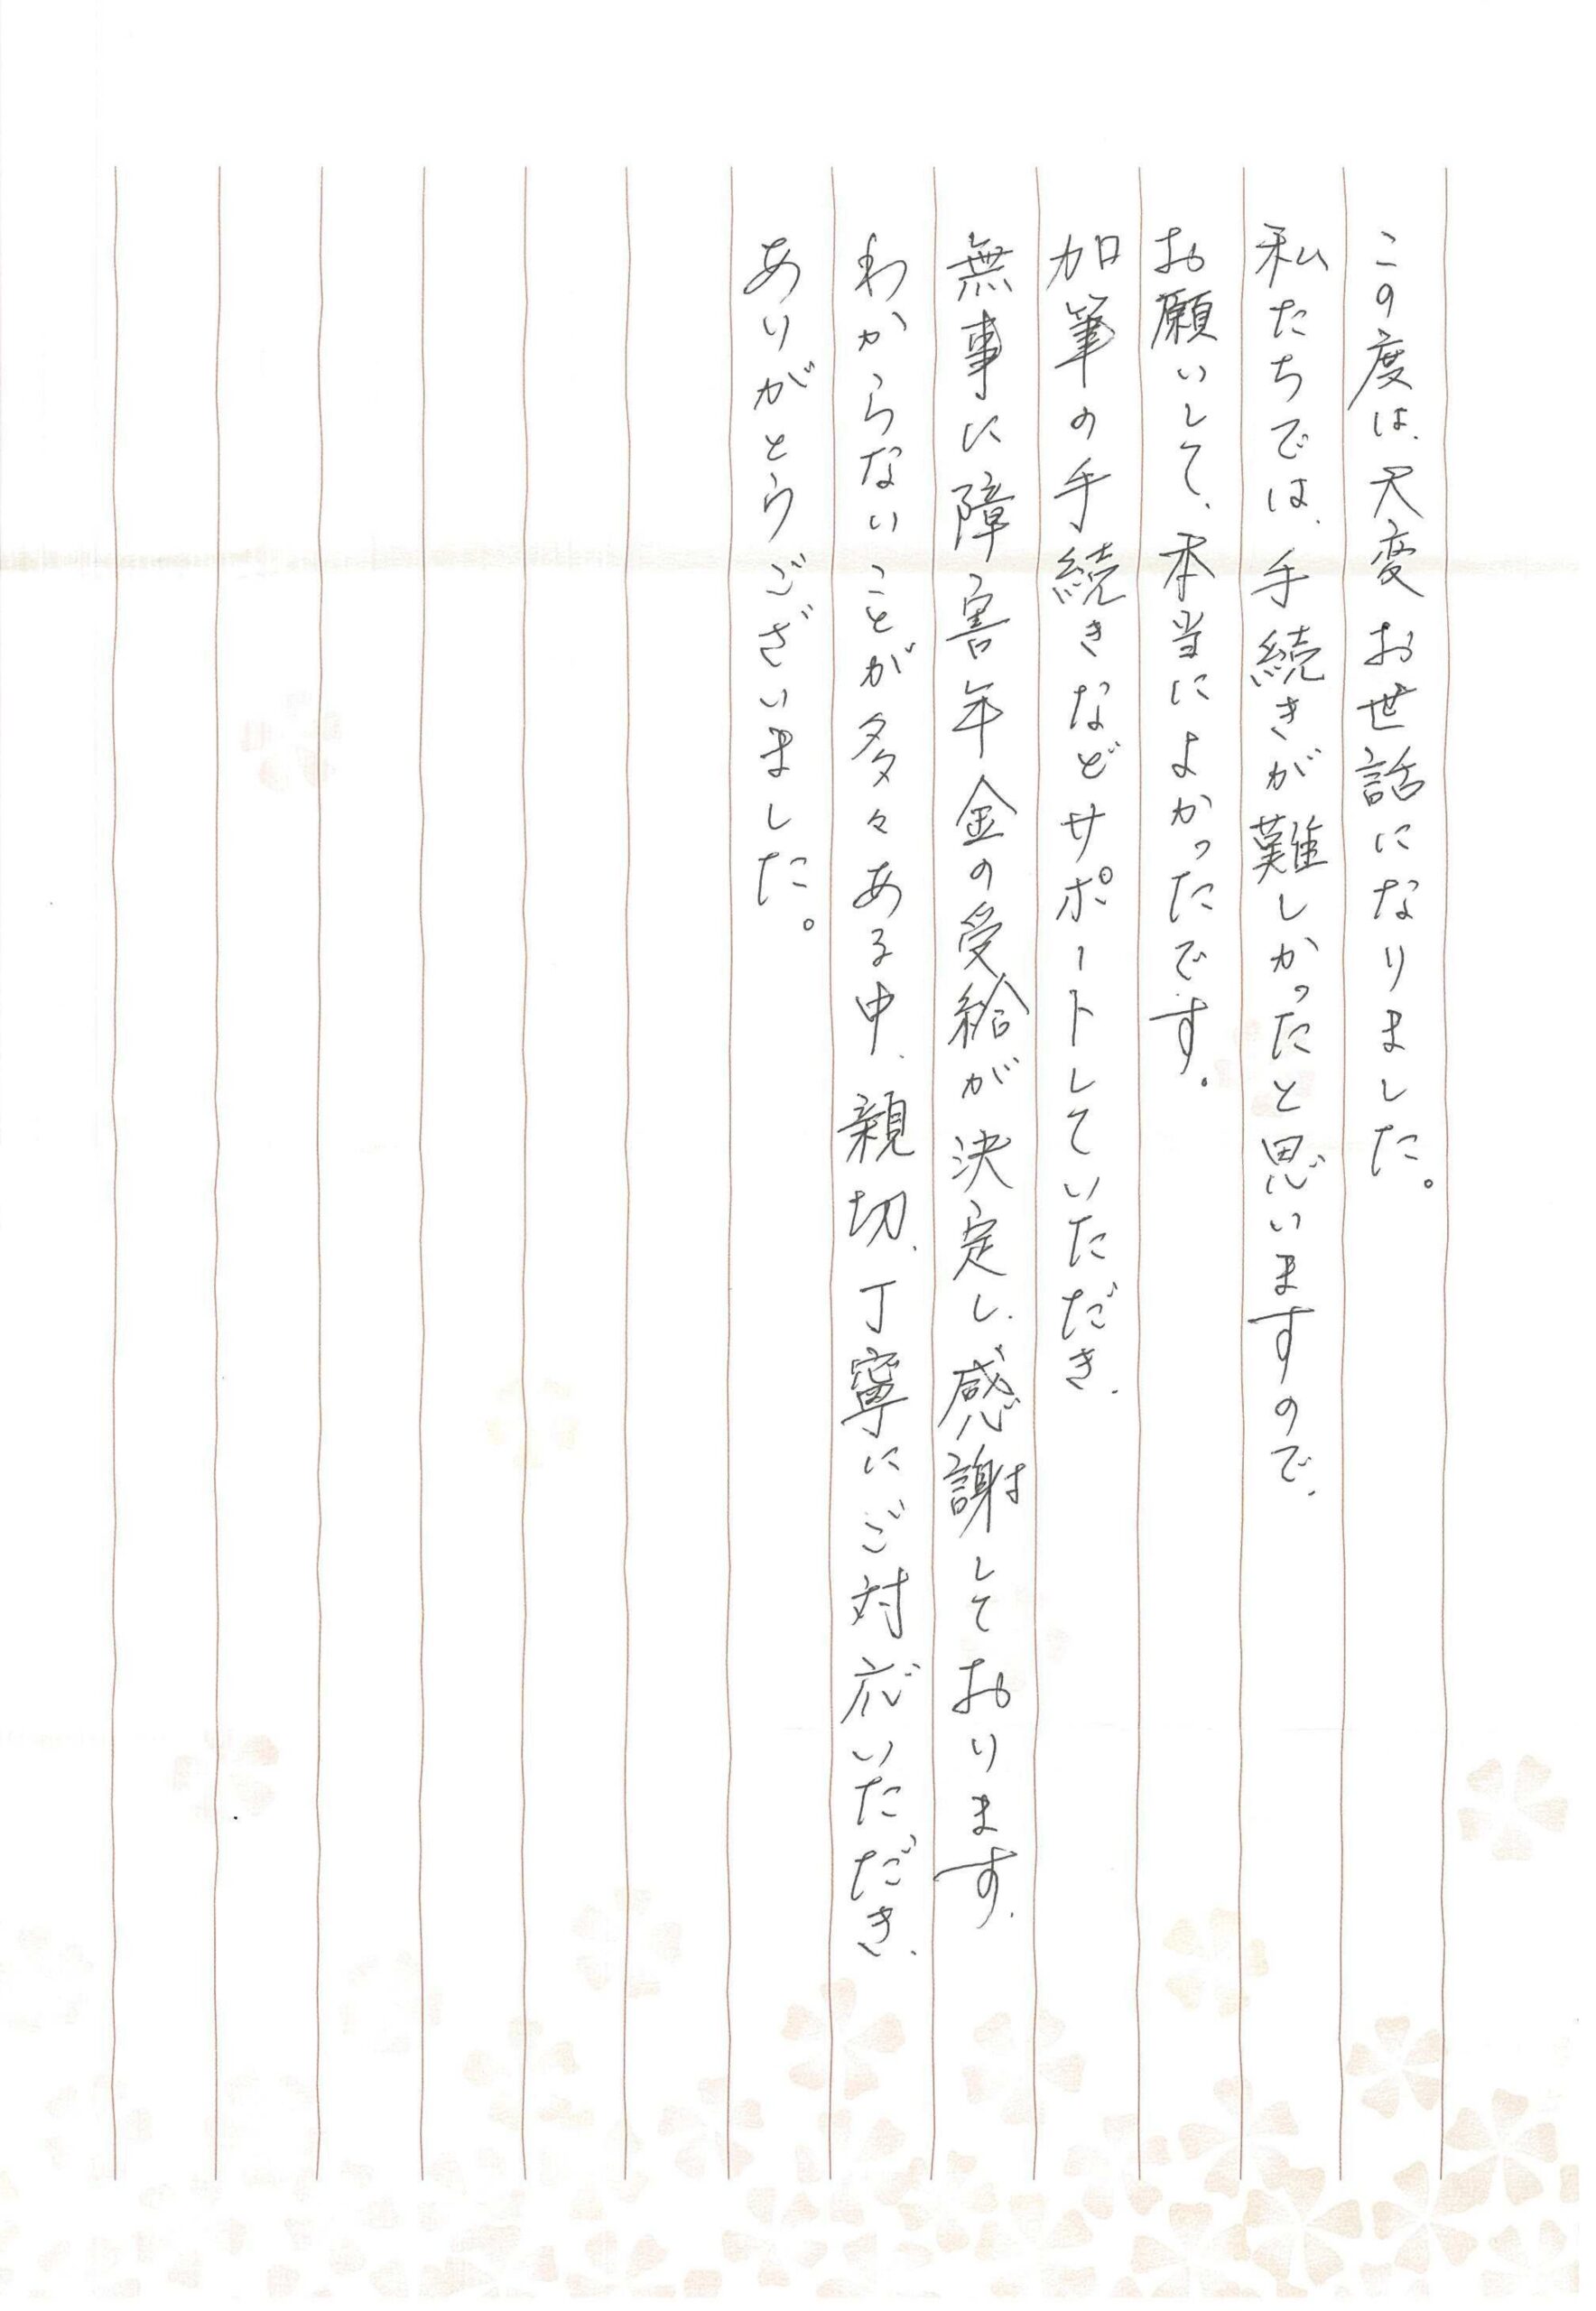 この度は、大変お世話になりました。
私たちでは、手続きが難しかったと思いますので、
お願いして、本当によかったです。
加筆の手続きなどサポートしていただき、
無事に障害年金の受給が決定し、感謝しております。
わからないことが多々ある中、親切、丁寧にご対応いただき、
ありがとうございました。